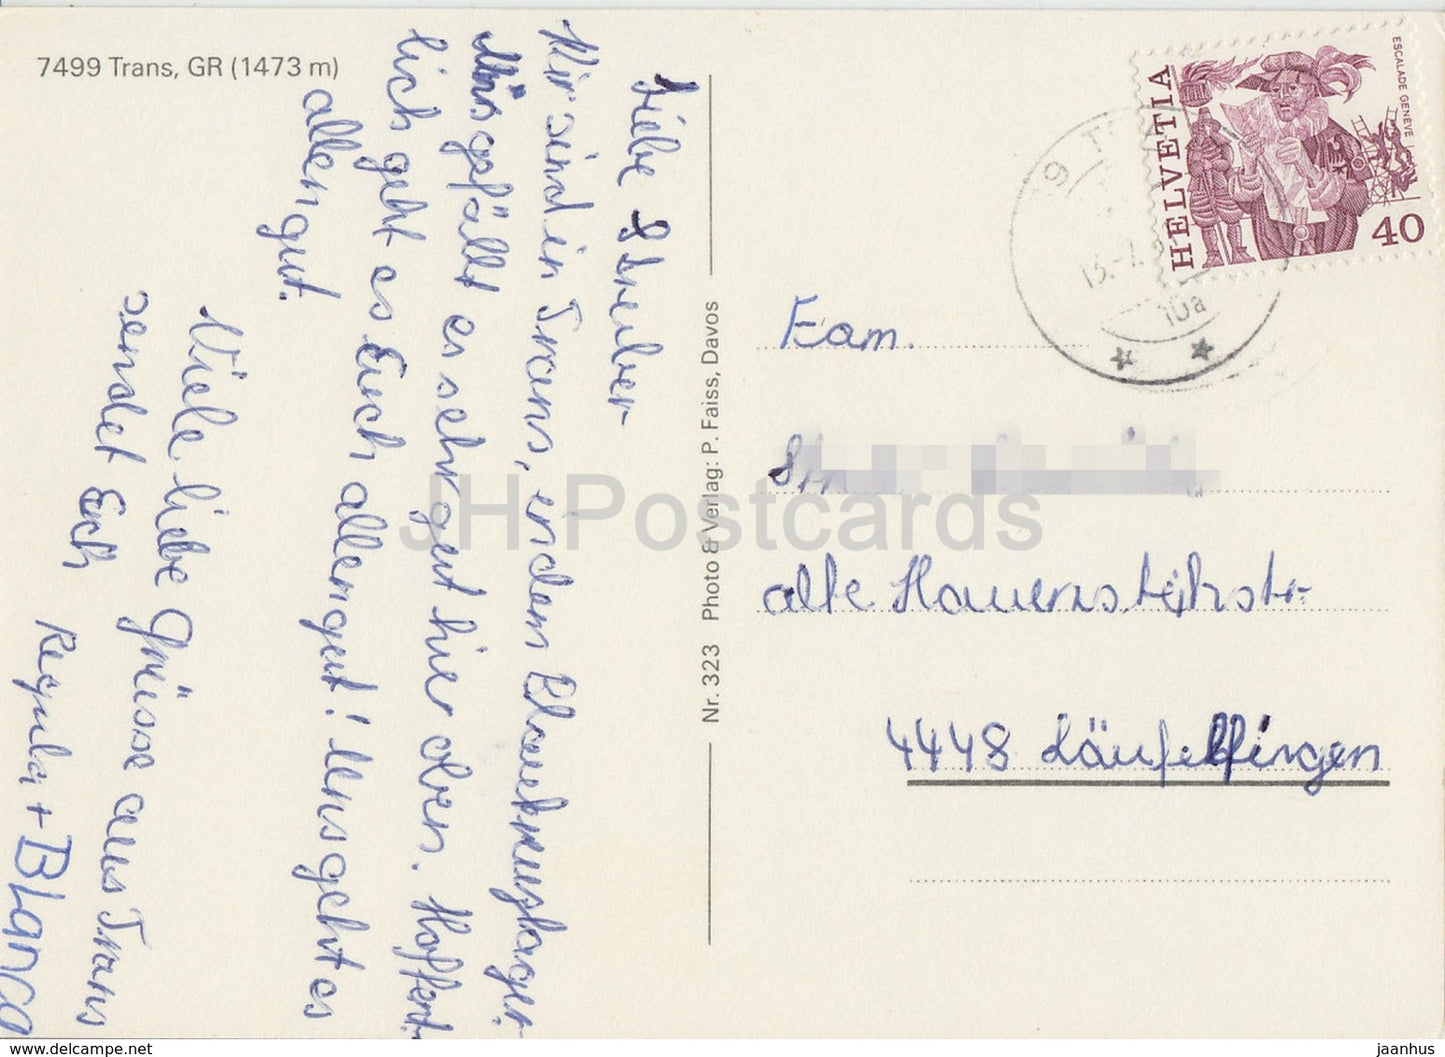 7499 Trans, GR (1473 m)
Liebe Streuber
Wir sind in Trans, in dem Blaukreuzlager.
Uns gefällt es sehr gut hier oben. Hoffent-
lich geht es Euch allen gut! Uns geht es
allen gut.
Viele liebe Grüsse aus Trans
sendet Euch
Regula + Blanca
Nr. 323 Photo & Verlag: P. Faiss, Davos
HELVETIA
ESCALADE GENEVE
40
13.-7.
10a
Fam.
alte Hauensteinstr.
4448 Läufelfingen
JH Postcards
www.delcampe.net
jaanhus